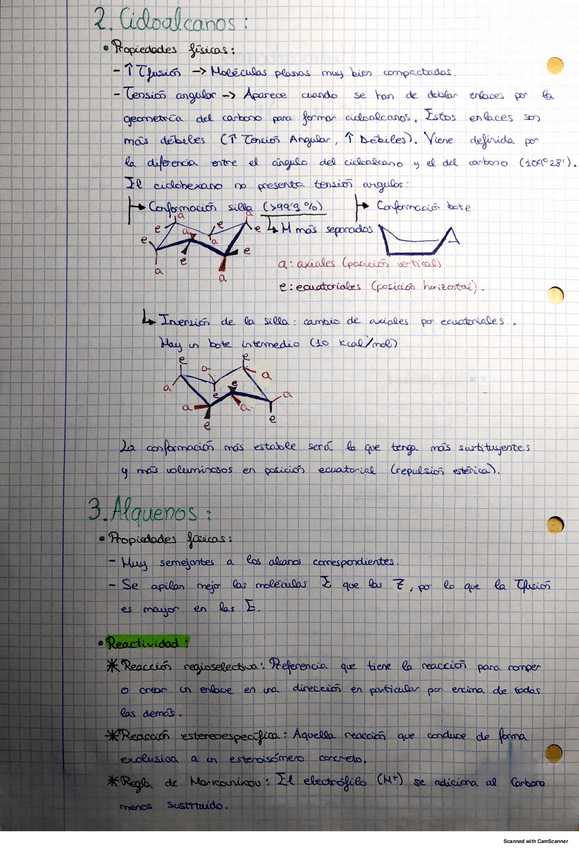 2. Cicloalcanos:
• Propiedades físicas:
- ↑Tfusión -> Moléculas planas muy bien compactadas.
- Tensión angular -> Aparece cuando se han de doblar enlaces por la
geometría del carbono para formar cicloalcanos. Estos enlaces son
más débiles (↑ Tensión Angular, ↑ Débiles). Viene definida por
la diferencia entre el ángulo del cicloalcano y el del carbono (109º28').
El ciclohexano no presenta tensión angular:
Conformación silla (>99'9 %) Conformación bote
H más separados
a a a a e e e e e e a a
a: axiales (posición vertical)
e: ecuatoriales (posición horizontal).
Inversión de la silla: cambio de axiales por ecuatoriales.
Hay un bote intermedio (10 kcal/mol)
e e a a a e e a a a e e
La conformación más estable será la que tenga más sustituyentes
y más voluminosos en posición ecuatorial (repulsión estérica).
3. Alquenos:
• Propiedades físicas:
- Muy semejantes a los alcanos correspondientes.
- Se apilan mejor las moléculas E que las Z, por lo que la Tfusión
es mayor en las E.
• Reactividad:
* Reacción regioselectiva: Preferencia que tiene la reacción para romper
o crear un enlace en una dirección en particular por encima de todas
las demás.
* Reacción estereoespecífica: Aquella reacción que conduce de forma
exclusiva a un estereoisómero concreto.
* Regla de Markovnikov: El electrófilo (H+) se adiciona al Carbono
menos sustituido.
Scanned with CamScanner